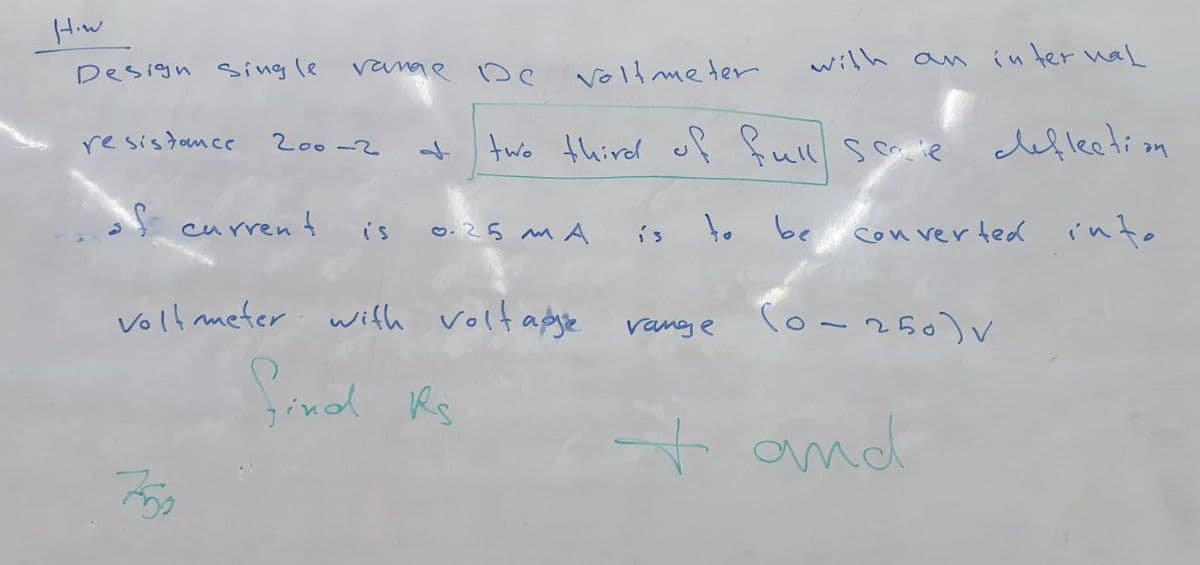 H.w
Design single range DC voltmeter with an internal
resistance 200-2 + two third of full scale deflection
of current is 0.25 mA is to be converted into
voltmeter with voltage range (0-250)v
find Rs
+ and
750